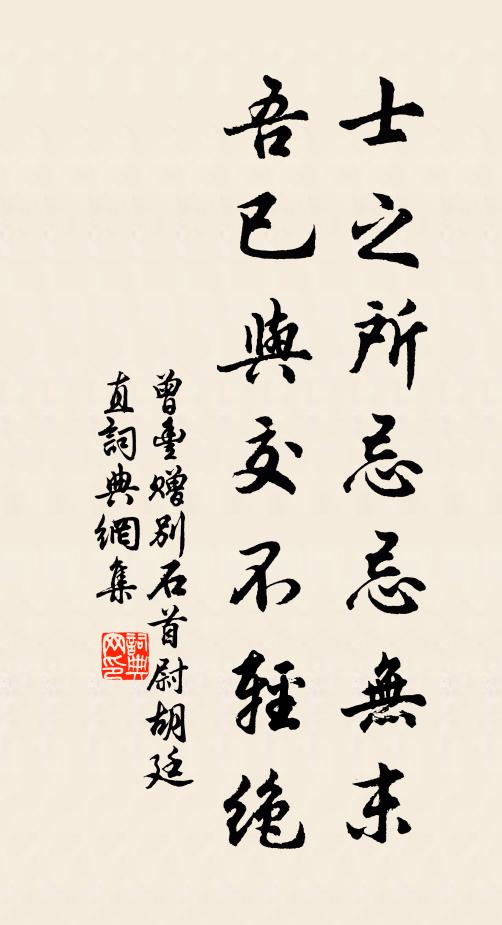 士之所忌忌無末
吾已與交不輕絶
曾豊贈别石首尉胡廷
直詞典網集
詞典網印